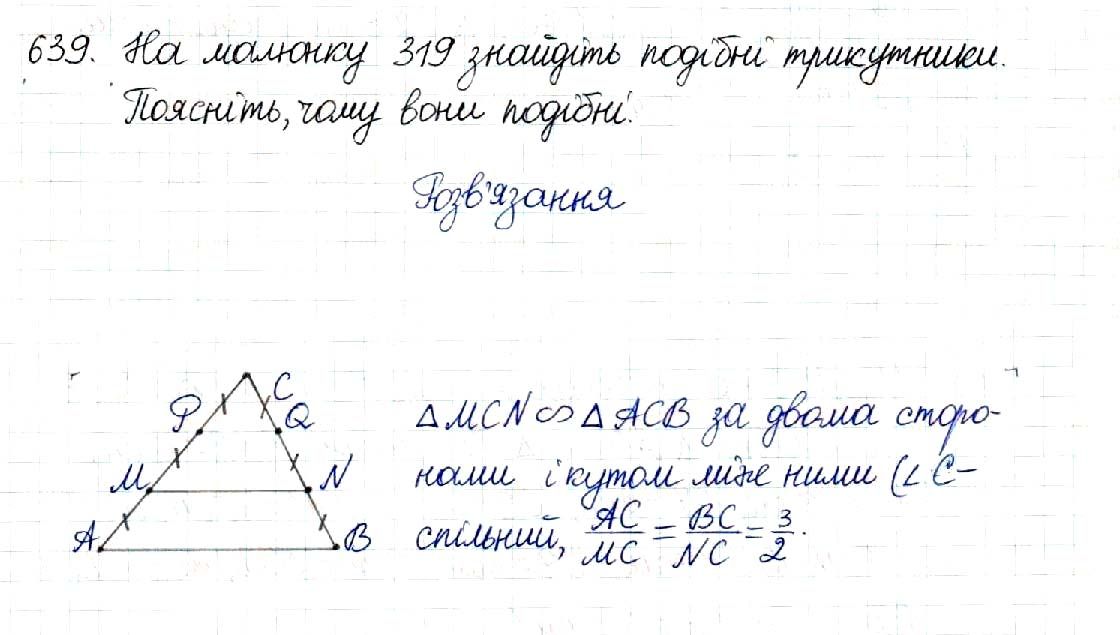 639. На малюнку 319 знайдіть подібні трикутники.
Поясніть, чому вони подібні.
Розв'язання
C
P
Q
M
N
A
B
△MCN ∽ △ACB за двома сторо-
нами і кутом між ними (∠C-
спільний, AC/MC = BC/NC = 3/2.